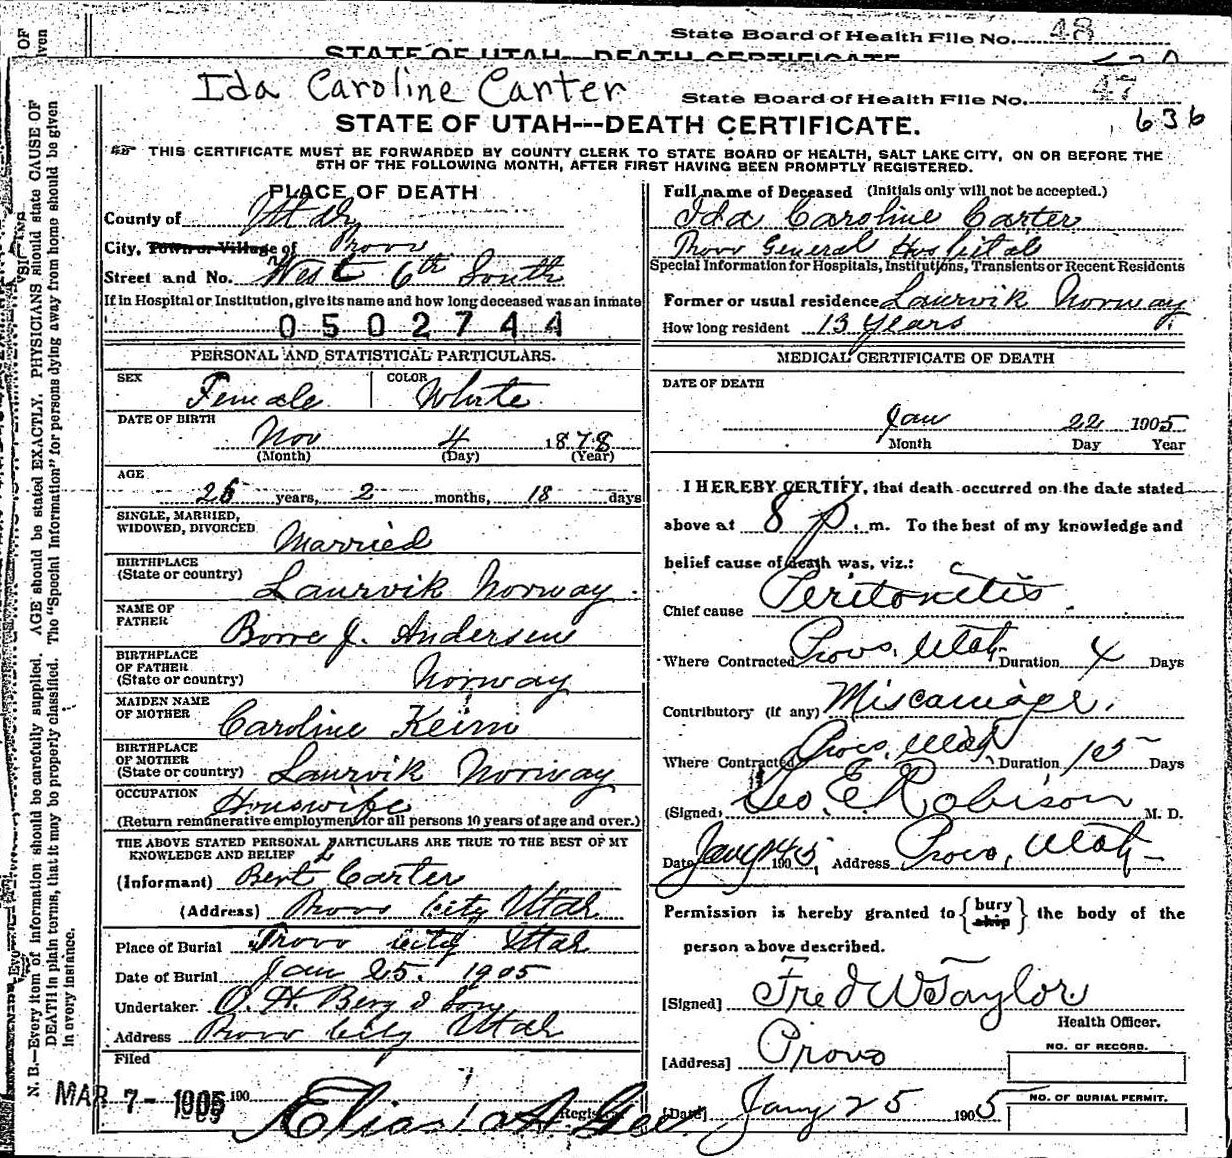 State Board of Health File No. 48
STATE OF UTAH---DEATH CERTIFICATE
Ida Caroline Carter
State Board of Health File No. 47
636
STATE OF UTAH---DEATH CERTIFICATE.
THIS CERTIFICATE MUST BE FORWARDED BY COUNTY CLERK TO STATE BOARD OF HEALTH, SALT LAKE CITY, ON OR BEFORE THE
5TH OF THE FOLLOWING MONTH, AFTER FIRST HAVING BEEN PROMPTLY REGISTERED.
PLACE OF DEATH
County of Utah
City, Town or Village of Provo
Street and No. West 6th South
If in Hospital or Institution, give its name and how long deceased was an inmate
0502744
PERSONAL AND STATISTICAL PARTICULARS.
SEX Female COLOR White
DATE OF BIRTH
Nov 4 1878
(Month) (Day) (Year)
AGE
26 years, 2 months, 18 days
SINGLE, MARRIED,
WIDOWED, DIVORCED Married
BIRTHPLACE
(State or country) Laurvik Norway
NAME OF
FATHER J. Andersen
BIRTHPLACE
OF FATHER
(State or country) Norway
MAIDEN NAME
OF MOTHER Caroline
BIRTHPLACE
OF MOTHER
(State or country) Laurvik Norway
OCCUPATION Houswife
(Return remunerative employment for all persons 10 years of age and over.)
THE ABOVE STATED PERSONAL PARTICULARS ARE TRUE TO THE BEST OF MY
KNOWLEDGE AND BELIEF
(Informant) Bert Carter
(Address) Provo City Utah
Place of Burial Provo City Utah
Date of Burial Jan 25. 1905
Undertaker. O. H. Berg & Son
Address Provo City Utah
Filed
MAR 7 - 1905 190
Registrar
Full name of Deceased (Initials only will not be accepted.)
Ida Caroline Carter
Provo General Hospital
Special Information for Hospitals, Institutions, Transients or Recent Residents
Former or usual residence Laurvik Norway
How long resident 13 Years
MEDICAL CERTIFICATE OF DEATH
DATE OF DEATH
Jan 22 1905
Month Day Year
I HEREBY CERTIFY, that death occurred on the date stated
above at 8 p. m. To the best of my knowledge and
belief cause of death was, viz.:
Chief cause Peritonitis
Where Contracted Provo, Utah Duration 4 Days
Contributory (if any) Miscarriage.
Where Contracted Provo, Utah Duration Days
(Signed) Geo. E. Robison M. D.
Date 1905, Address Provo, Utah
Permission is hereby granted to {bury ship} the body of the
person above described.
[Signed] Fred W Taylor
Health Officer.
[Address] Provo
NO. OF RECORD.
[Date] Jany 25 1905
NO. OF BURIAL PERMIT.
N. B.—Every item of information should be carefully supplied. AGE should be stated EXACTLY. PHYSICIANS should state CAUSE OF
DEATH in plain terms, that it may be properly classified. The "Special Information" for persons dying away from home should be given
in every instance.